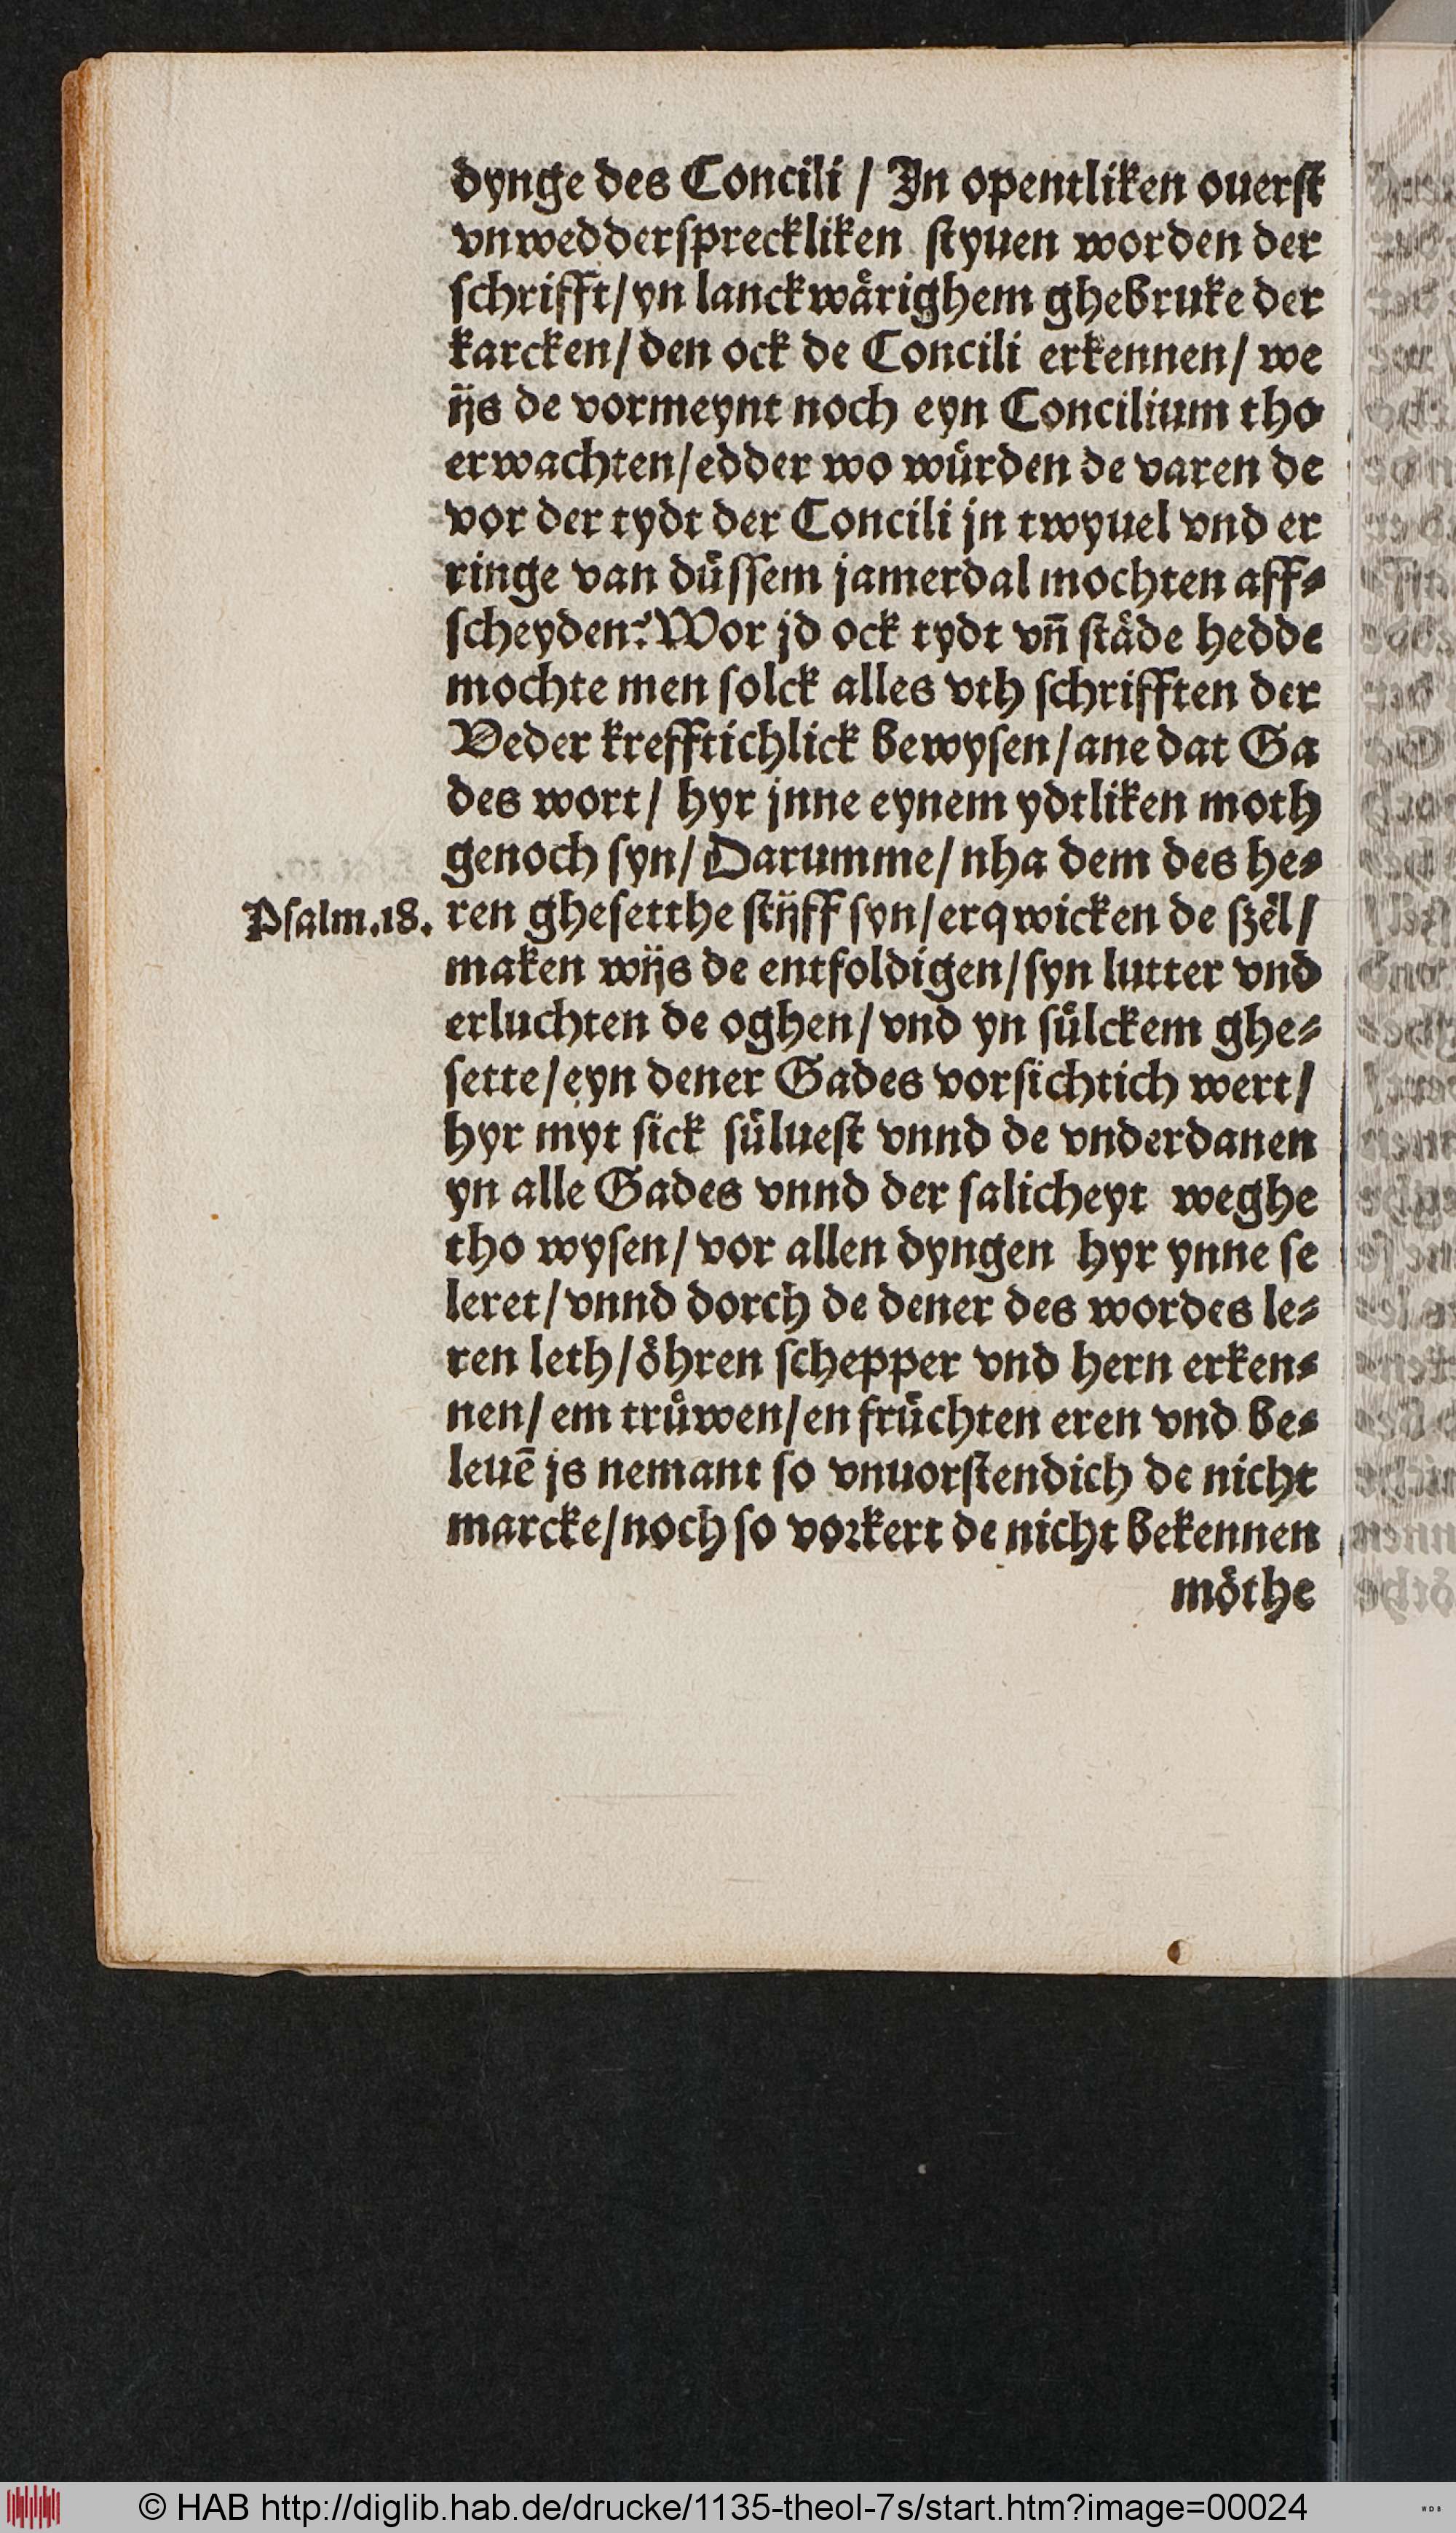 dynge des Concili / In opentliken ouerst
vnwedderspreckliken styuen worden der
schrifft/yn lanckwårighem ghebruke der
karcken/den ock de Concili erkennen/ we
ijs de vormeynt noch eyn Concilium tho
erwachten/edder wo wůrden de varen de
vor der tydt der Concili jn twyuel vnd er
ringe van důssem jamerdal mochten aff⸗
scheyden? Wor jd ock tydt vn̄ ståde hedde
mochte men solck alles vth schrifften der
Veder krefftichlick bewysen/ane dat Ga
des wort/ hyr jnne eynem ydtliken moth
genoch syn/Darumme/nha dem des he⸗
Psalm.18. ren ghesetthe stijff syn/erqwicken de szel/
maken wijs de entfoldigen/syn lutter vnd
erluchten de oghen/vnd yn sůlckem ghe⸗
sette/eyn dener Gades vorsichtich wert/
hyr myt sick sůluest vnnd de vnderdanen
yn alle Gades vnnd der salicheyt weghe
tho wysen/vor allen dyngen hyr ynne se
leret/vnnd dorch de dener des wordes le⸗
ren leth/o̊hren schepper vnd hern erken⸗
nen/em trůwen/en frůchten eren vnd be⸗
leuē js nemant so vnuorstendich de nicht
marcke/noch so vorkert de nicht bekennen
mo̊the
© HAB http://diglib.hab.de/drucke/1135-theol-7s/start.htm?image=00024